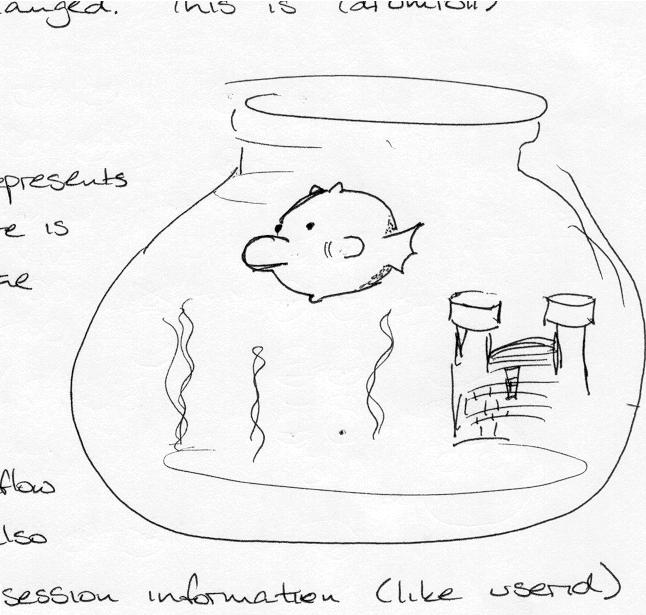 anged. This is
epresents
e is
flow
lso
session information (like userid)